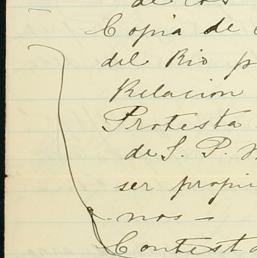 de los
Copia de
del Rio p
Relacion
Protesta
de S. P.
ser propi
nos -
Contesta